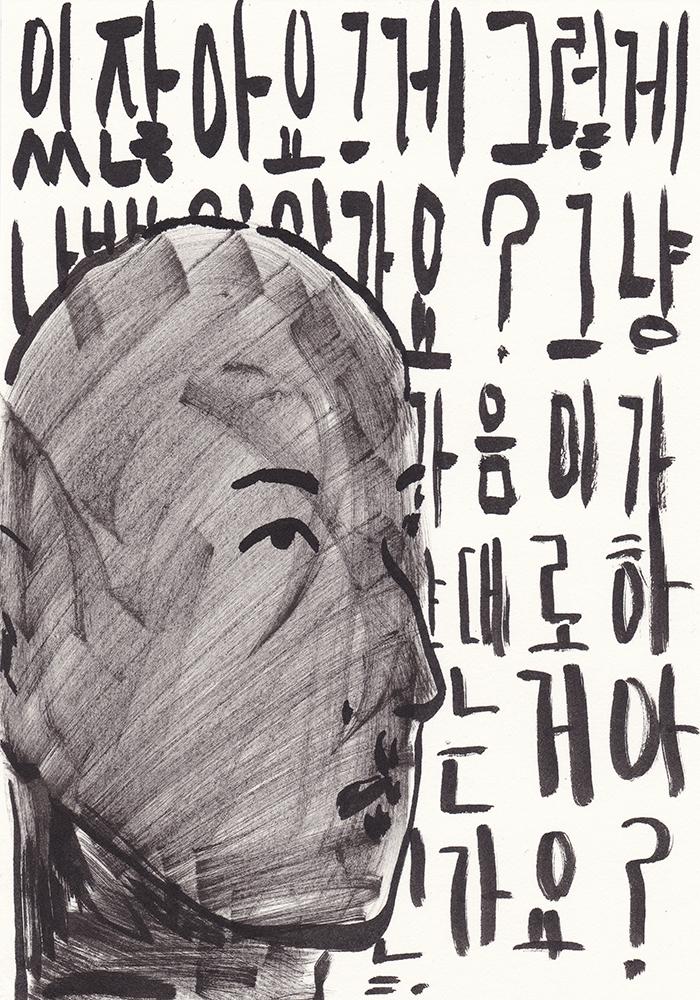 있잖아요 그게 그렇게
나쁜 일인가요? 그냥
마음이 가
는대로 하
는 거 아
닌가요?